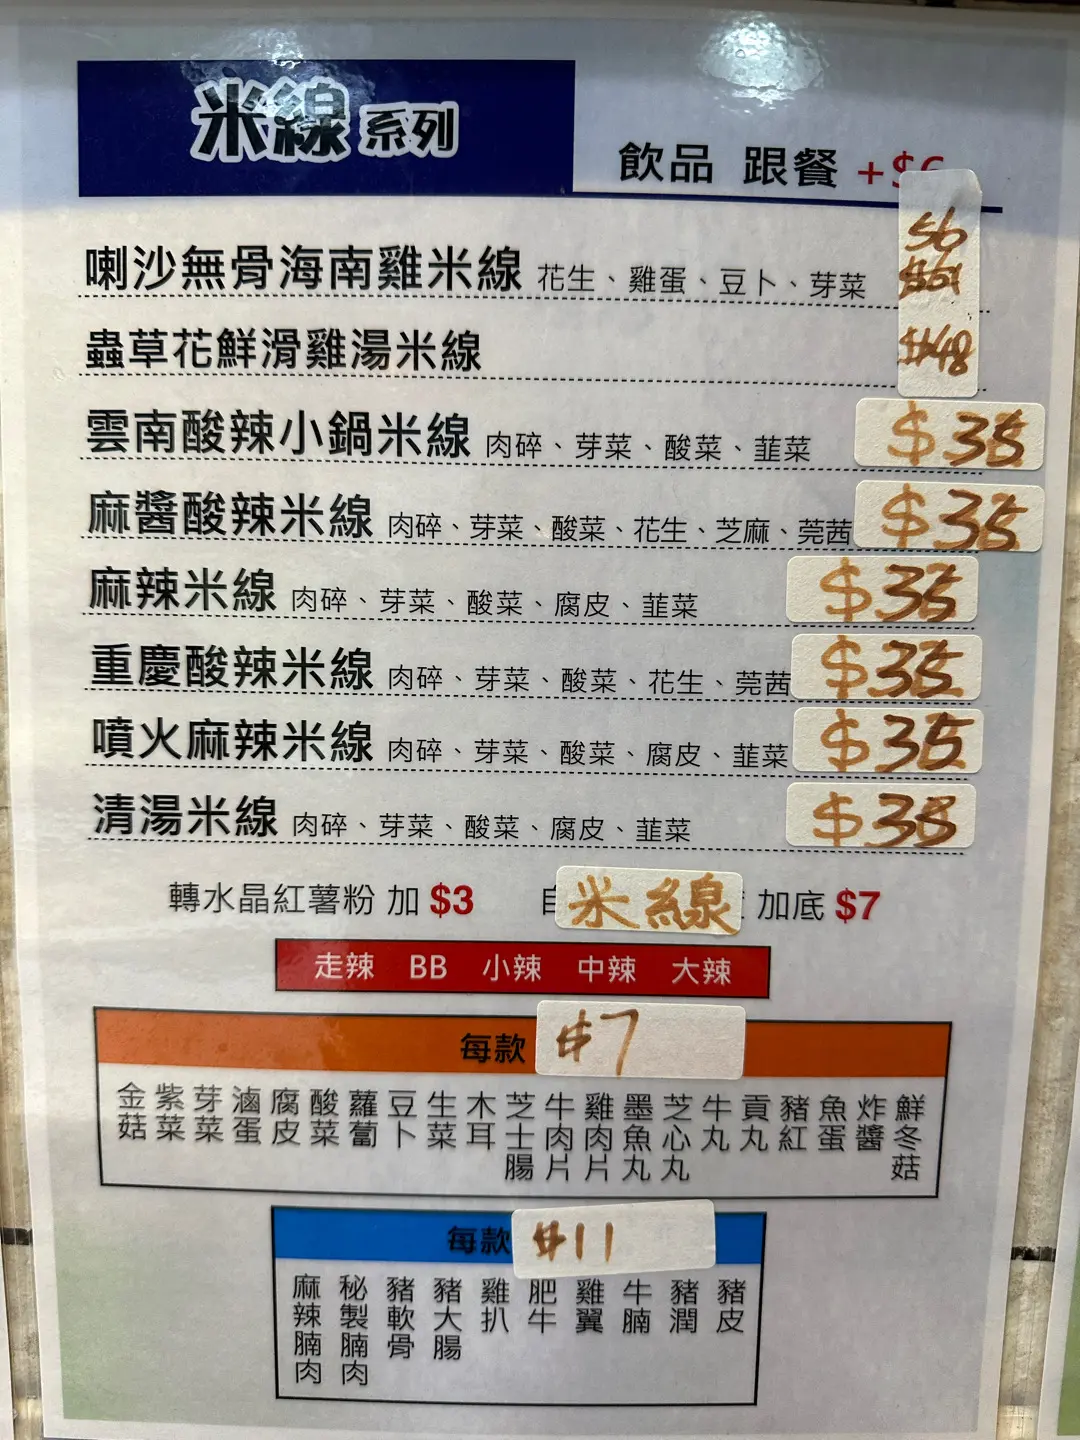 米線 系列
飲品 跟餐 +$6
喇沙無骨海南雞米線 花生、雞蛋、豆卜、芽菜 56
蟲草花鮮滑雞湯米線 $48
雲南酸辣小鍋米線 肉碎、芽菜、酸菜、韮菜 $35
麻醬酸辣米線 肉碎、芽菜、酸菜、花生、芝麻、莞茜 $35
麻辣米線 肉碎、芽菜、酸菜、腐皮、韮菜 $35
重慶酸辣米線 肉碎、芽菜、酸菜、花生、莞茜 $35
噴火麻辣米線 肉碎、芽菜、酸菜、腐皮、韮菜 $35
清湯米線 肉碎、芽菜、酸菜、腐皮、韮菜
轉水晶紅薯粉 加 $3 米線 加底 $7
走辣 BB 小辣 中辣 大辣
每款 $7
金菇 紫菜 芽菜 滷蛋 腐皮 酸菜 蘿蔔 豆卜 生菜 木耳 芝士腸 牛肉片 雞肉片 墨魚丸 芝心丸 牛丸 貢丸 豬紅 魚蛋 炸醬 鮮冬菇
每款 $11
麻辣腩肉 秘製腩肉 豬軟骨 豬大腸 雞扒 肥牛 雞翼 牛腩 豬潤 豬皮